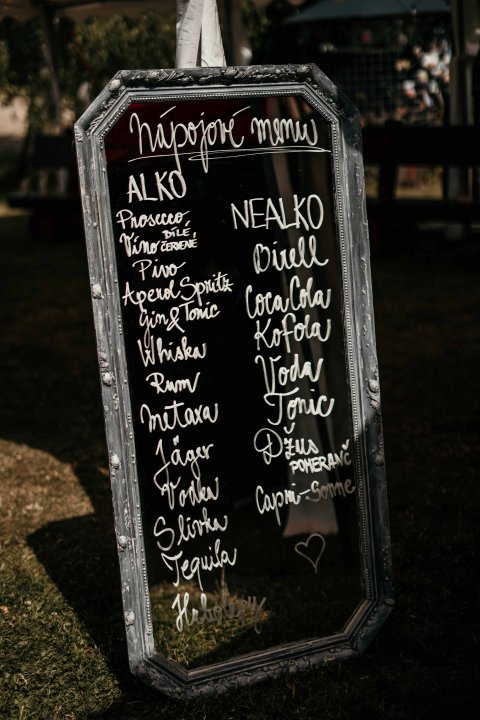 Nápojové menu
ALKO
Prosecco
Víno BÍLÉ ČERVENÉ
Pivo
Aperol Spritz
Gin & Tonic
Whiska
Rum
Metaxa
Jäger
Vodka
Slivka
Tequila
NEALKO
Birell
Coca Cola
Kofola
Voda
Tonic
Džus
POMERANČ
Capri-Sonne